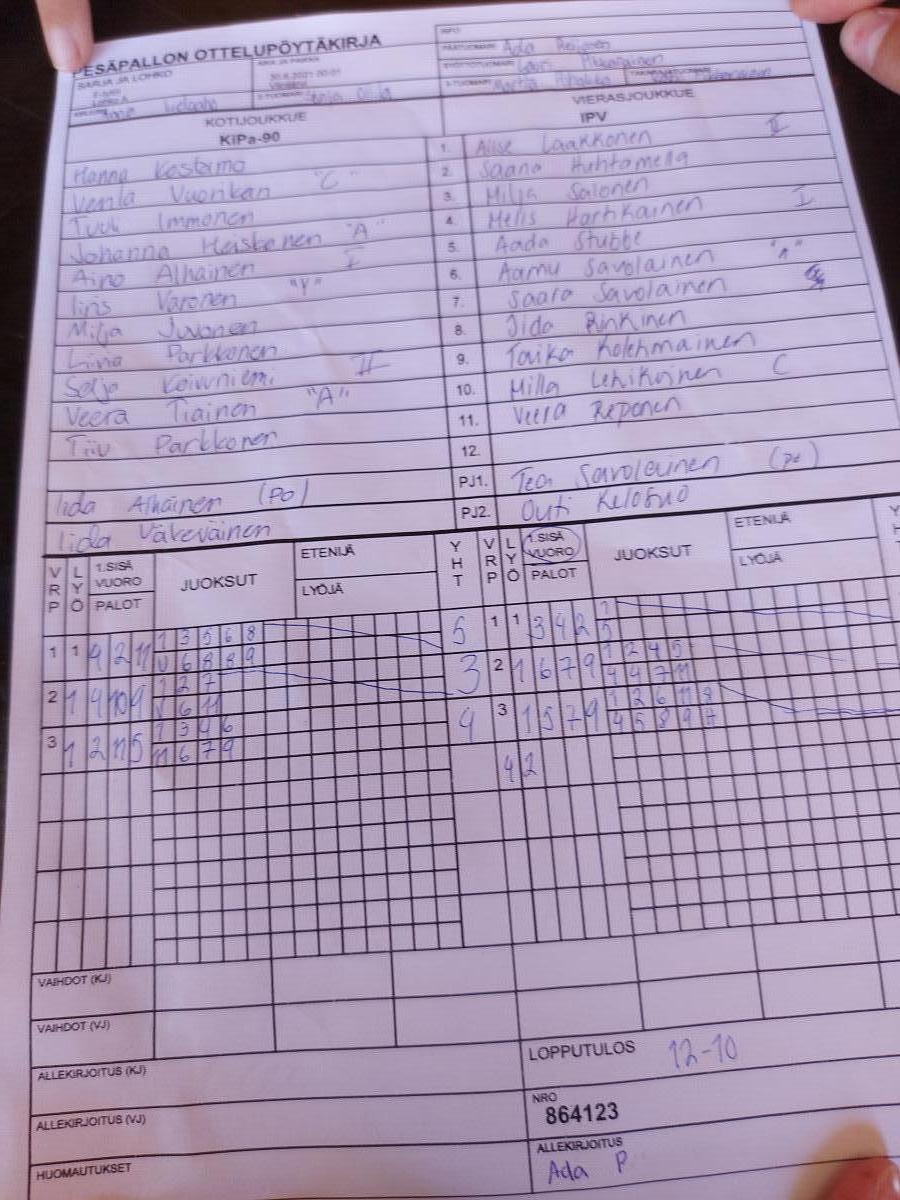 PESÄPALLON OTTELUPÖYTÄKIRJA
SARJA JA LOHKO
30.6.2021
Ada
KOTIJOUKKUE
VIERASJOUKKUE
KiPa-90
IPV
Hanna Kostamo
1. Alise Laakkonen II
Venla Vuorikan "C"
2. Saana Huhtamella
Tuuli Immonen
3. Milja Salonen
Johanna Heiskanen "A"
4. Melis Hartikainen I
Aino Alhainen I
5. Aada Stubbe
Iiris Varonen "V"
6. Aamu Savolainen "A"
Milja Juvonen
7. Saara Savolainen
Liina Parkkonen
8. Iida Rinkinen
Salja Koivuniemi II
9. Taika Kolehmainen
Veera Tiainen "A"
10. Milla Lehikoinen C
Tiiu Parkkonen
11. Veera Reponen
12.
Iida Alhainen (PO)
PJ1. Tea Savolainen (po)
Iida Väkeväinen
PJ2. Outi Kelosuo
VRP LYÖ 1.SISÄ VUORO PALOT JUOKSUT ETENIJÄ LYÖJÄ YHT
VRP LYÖ 1.SISÄ VUORO PALOT JUOKSUT ETENIJÄ LYÖJÄ
1 1 4 2 11 1 3 5 6 8 5
V 6 8 8 9
1 1 3 4 2 5
2 1 4 10 9 1 2 7 3
V 6 11
2 1 6 7 9 1 2 4 5
4 4 7 11
3 1 2 11 5 1 3 4 6 4
11 6 7 9
3 1 5 7 9 1 2 6 11 8
4 5 8 9 7
4 2
VAIHDOT (KJ)
VAIHDOT (VJ)
ALLEKIRJOITUS (KJ)
LOPPUTULOS 12-10
ALLEKIRJOITUS (VJ)
NRO
864123
HUOMAUTUKSET
ALLEKIRJOITUS
Ada P